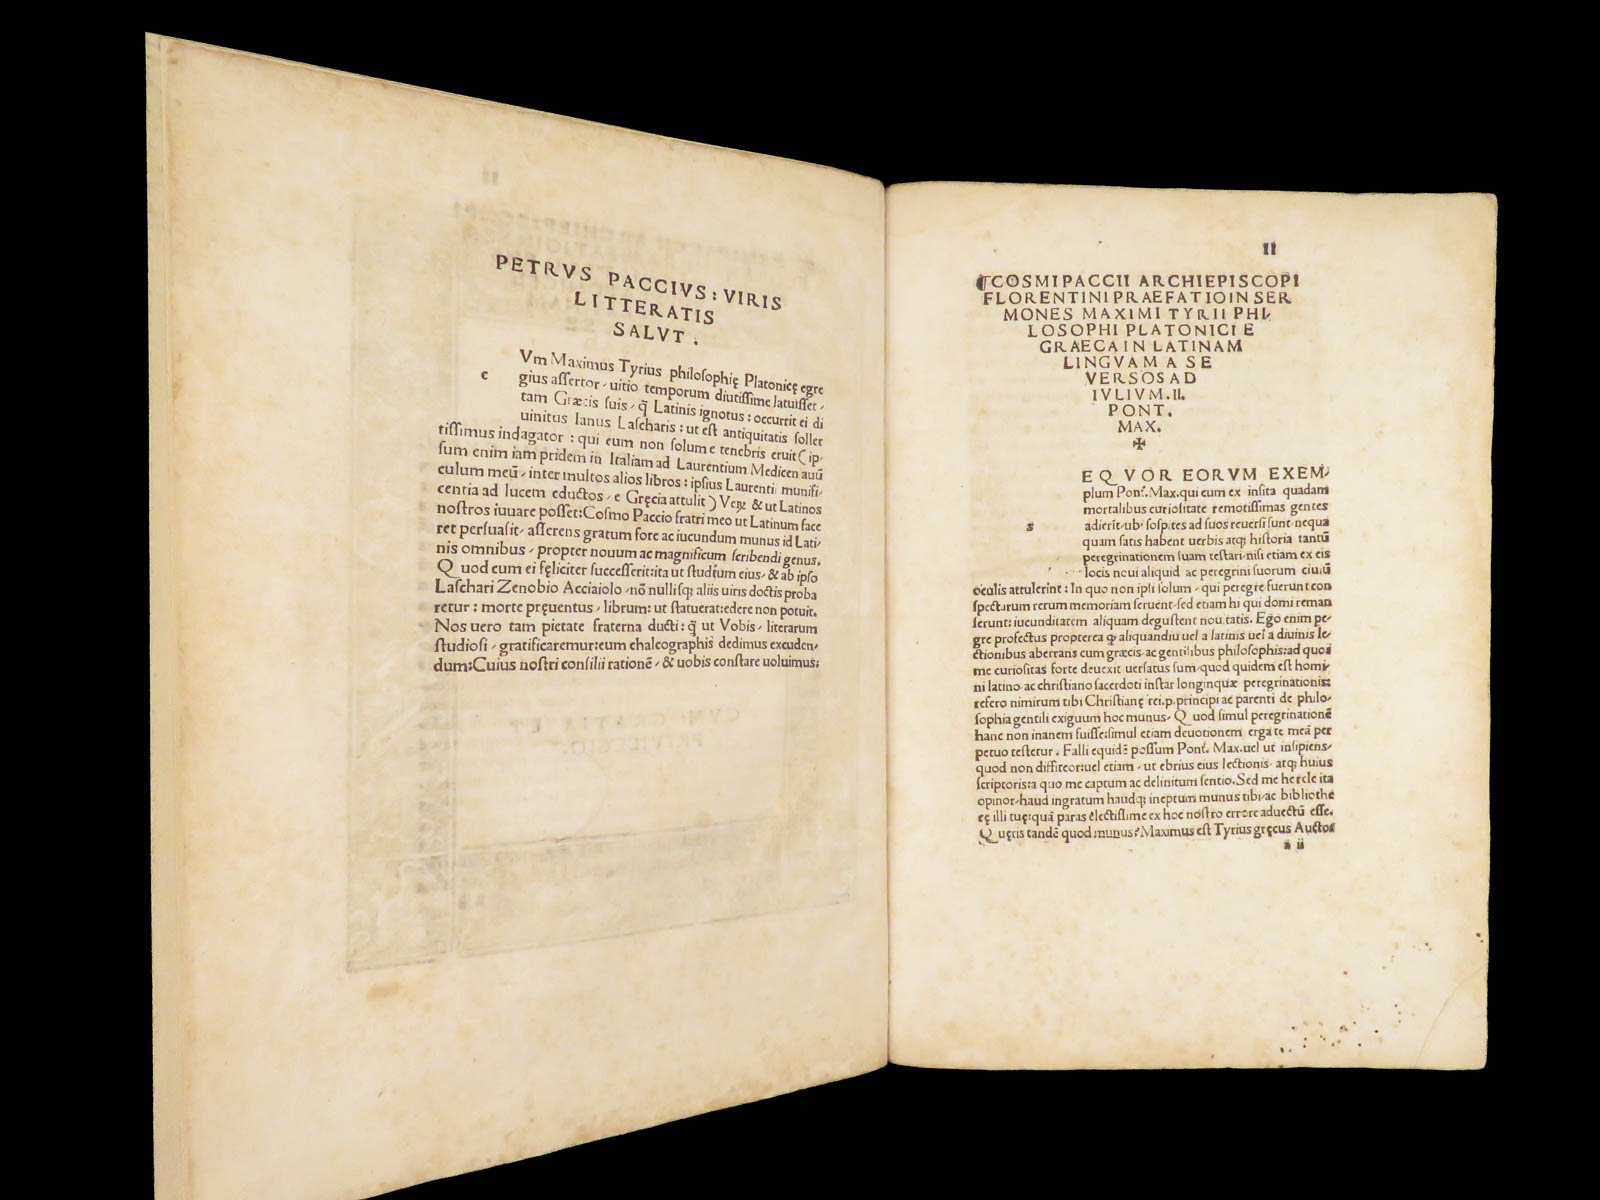 PETRVS PACCIVS : VIRIS
LITTERATIS
SALVT .
c
Vm Maximus Tyrius philosophię Platonicę egre
gius assertor, uitio temporum diutissime latuisset,
tam Græcis suis, q̃ Latinis ignotus : occurrit ei di
uinitus Ianus Lascharis : ut est antiquitatis soller
tissimus indagator : qui eum non solum e tenebris eruit ( ip,
sum enim iam pridem in Italiam ad Laurentium Medicen auū
culum meū, inter multos alios libros : ipsius Laurentii munifi,
centia ad lucem eductos, e Gręcia attulit ) Veꝝ & ut Latinos
nostros iuuare posset: Cosmo Paccio fratri meo ut Latinum face
ret persuasit, asserens gratum fore ac iucundum munus id Lati,
nis omnibus, propter nouum ac magnificum scribendi genus.
Q uod cum ei fęliciter successerit: ita ut studium eius, & ab ipso
Laschari Zenobio Acciaiolo, nō nullisq; aliis uiris doctis proba
retur : morte pręuentus, librum : ut statuerat: edere non potuit.
Nos uero tam pietate fraterna ducti : q̃ ut Vobis, literarum
studiosi, gratificaremur: eum chalcographis dedimus excuden,
dum: Cuius nostri consilii rationē, & uobis constare uoluimus:
II
¶COSMI PACCII ARCHIEPISCOPI
FLORENTINI PRAEFATIO IN SER
MONES MAXIMI TYRII PHI,
LOSOPHI PLATONICI E
GRAECA IN LATINAM
LINGVAM A SE
VERSOS AD
IVLIVM. II.
PONT.
MAX.
✠
s
EQVOR EORVM EXEM,
plum Pont. Max. qui cum ex insita quadam
mortalibus curiositate remotissimas gentes
adierīt, ubi sospites ad suos reuersi sunt, nequa
quam satis habent uerbis atq; historia tantū
peregrinationem suam testari, nisi etiam ex eis
locis noui aliquid ac peregrini suorum ciuiū
oculis attulerint : In quo non ipsi solum, qui peregre fuerunt con
spectarum rerum memoriam seruent, sed etiam hi qui domi reman
serunt: iucunditatem aliquam degustent nouitatis. Ego enim pe,
gre profectus propterea ꝙ aliquandiu uel a latinis uel a diuinis le,
ctionibus aberrans cum græcis, ac gentilibus philosophis: ad quos
me curiositas forte deuexit uersatus sum, quod quidem est homi,
ni latino, ac christiano sacerdoti instar longinquæ peregrinationis:
refero nimirum tibi Christianę rei. p. principi ac parenti de philo,
sophia gentili exiguum hoc munus, Q uod simul peregrinationē
hanc non inanem fuisse: simul etiam deuotionem erga te meā per
petuo testetur . Falli equidē possum Pont. Max. uel ut insipiens,
quod non diffiteor: uel etiam, ut ebrius eius lectionis, atq; huius
scriptoris: a quo me captum ac delinitum sentio. Sed me hercle ita
opinor, haud ingratum haudq; ineptum munus tibi, ac bibliothe
cę illi tuę: quā paras electissime ex hoc nostro errore aduectū esse.
Q uęris tandē quod munus? Maximus est Tyrius gręcus Auctor
a ii